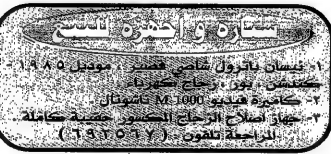 سيارة و أجهزة للبيع
١- نيسان باترول شاصي قصير ، موديل ١٩٨٥ -
كنديشن ، بور ، زجاج كهرباء .
٢- كاميرة فيديو M 1000 ناشونال .
٣- جهاز اصلاح الزجاج المكسور حقيبة كاملة
للمراجعة تلفون : ( ٦٩٢٥٦٧ )